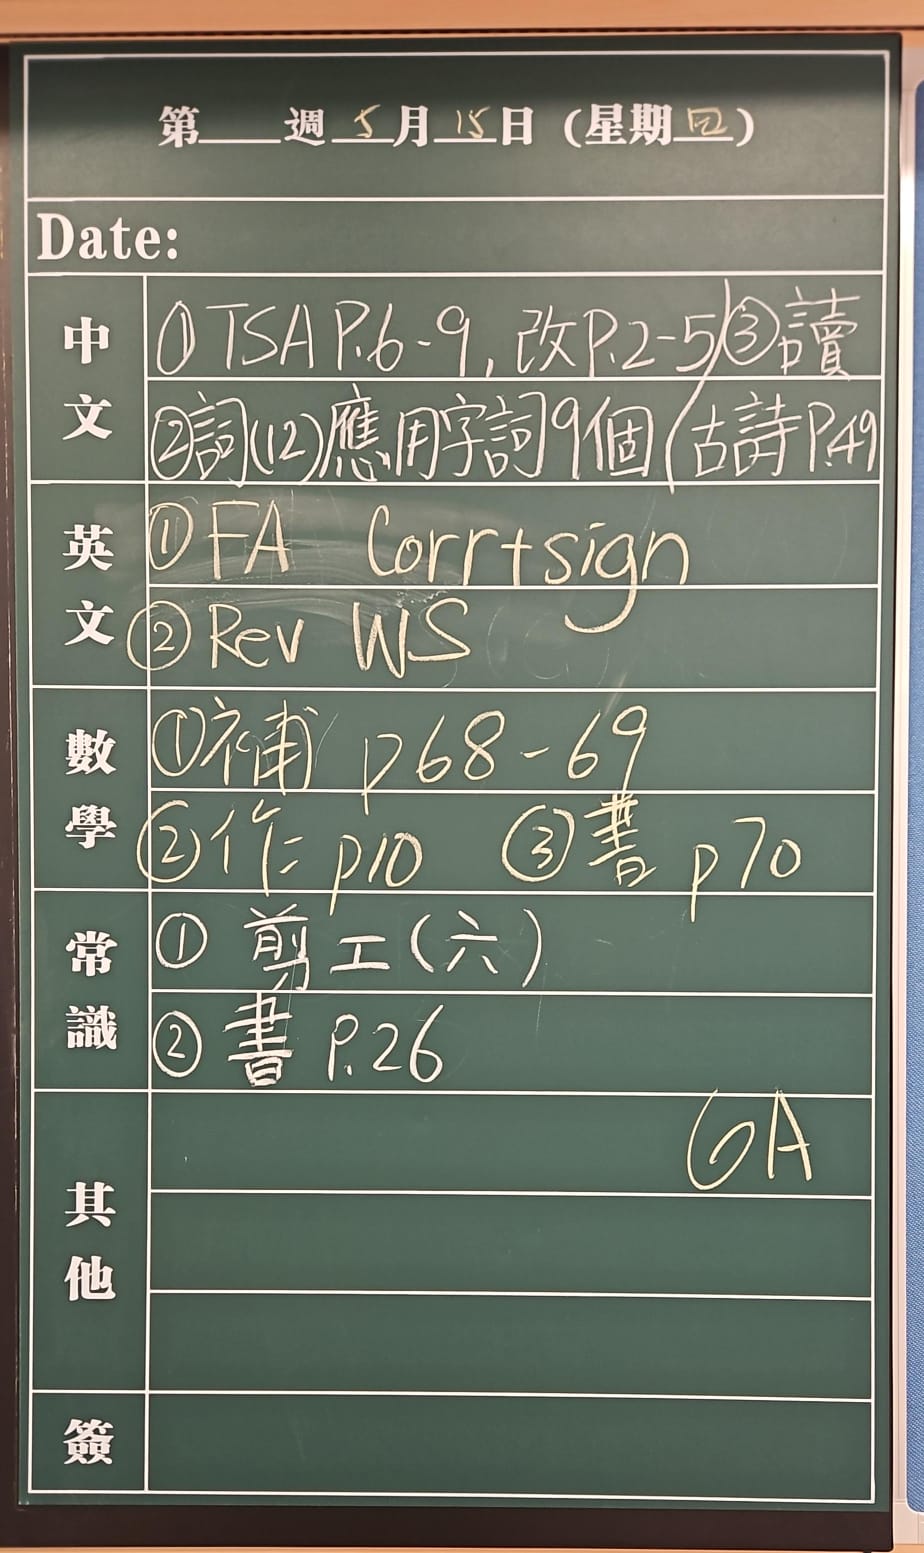 第____週 5 月 15 日 (星期 四)
Date:
中文
① TSA P.6-9, 改P.2-5 ③ 讀
② 詞(12)應用字詞9個 古詩 P.49
英文
① FA Corr+sign
② Rev WS
數學
① 補 p68-69
② 作 p10 ③ 書 p70
常識
① 剪工(六)
② 書 P.26
其他
6A
簽